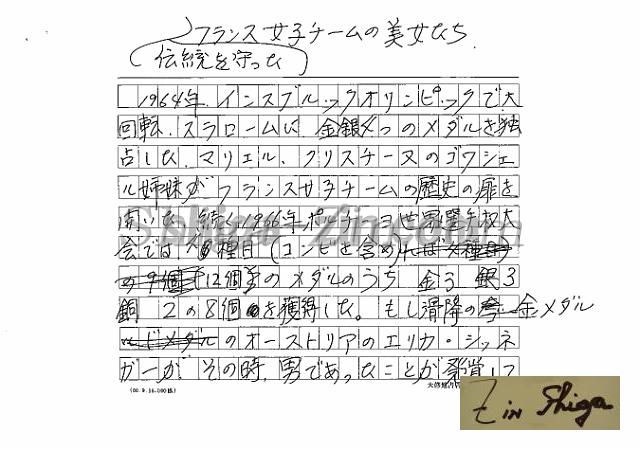 フランス女子チームの美女たち
伝統を守った
1964年、インスブルックオリンピックで大
回転、スラロームに、金銀4つのメダルを独
占した、マリエル、クリスチーヌのゴワシェ
ル姉妹が フランス女子チームの歴史の扉を
開いた。続く1966年ポルティヨ世界選手権大
会では 種目(コンビを含め
12個のメダルのうち 金3 銀3
銅 2の8個を獲得した。もし滑降の金メダル
のオーストリアのエリカ・シネ
ガーが その時、男であったことが発覚して
Shiga Zin.com
(60.9.16.100冊)
Z in Shiga